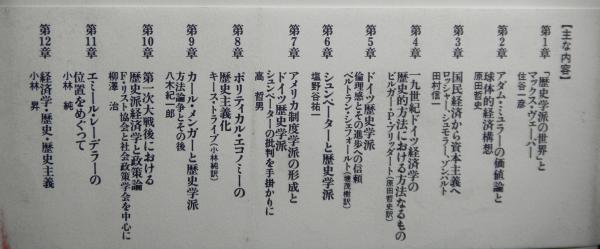 【主な内容】
第1章
「歴史学派の世界」と
マックス・ヴェーバー
住谷一彦
第2章
アダム・ミュラーの価値論と
球体的経済構想
原田哲史
第3章
国民経済から資本主義へ
ロッシャー、シュモラー、ゾンバルト
田村信一
第4章
一九世紀ドイツ経済学の
歴史的方法における方法なるもの
ビルガー・P・プリッダート(原田哲史訳)
第5章
ドイツ歴史学派
倫理感とその進歩への信頼
ベルトラン・シェフォールト(塘茂樹訳)
第6章
シュンペーターと歴史学派
塩野谷祐一
第7章
アメリカ制度学派の形成と
ドイツ歴史学派
シュンペーターの批判を手掛かりに
高 哲男
第8章
ポリティカル・エコノミーの
歴史主義化
キース・トライブ(小林純訳)
第9章
カール・メンガーと歴史学派
方法論争とその後
八木紀一郎
第10章
第一次大戦後における
歴史派経済学と政策論
F・リスト協会と社会政策学会を中心に
柳澤 治
第11章
エミール・レーデラーの
位置をめぐって
小林 純
第12章
経済学・歴史・歴史主義
小林 昇